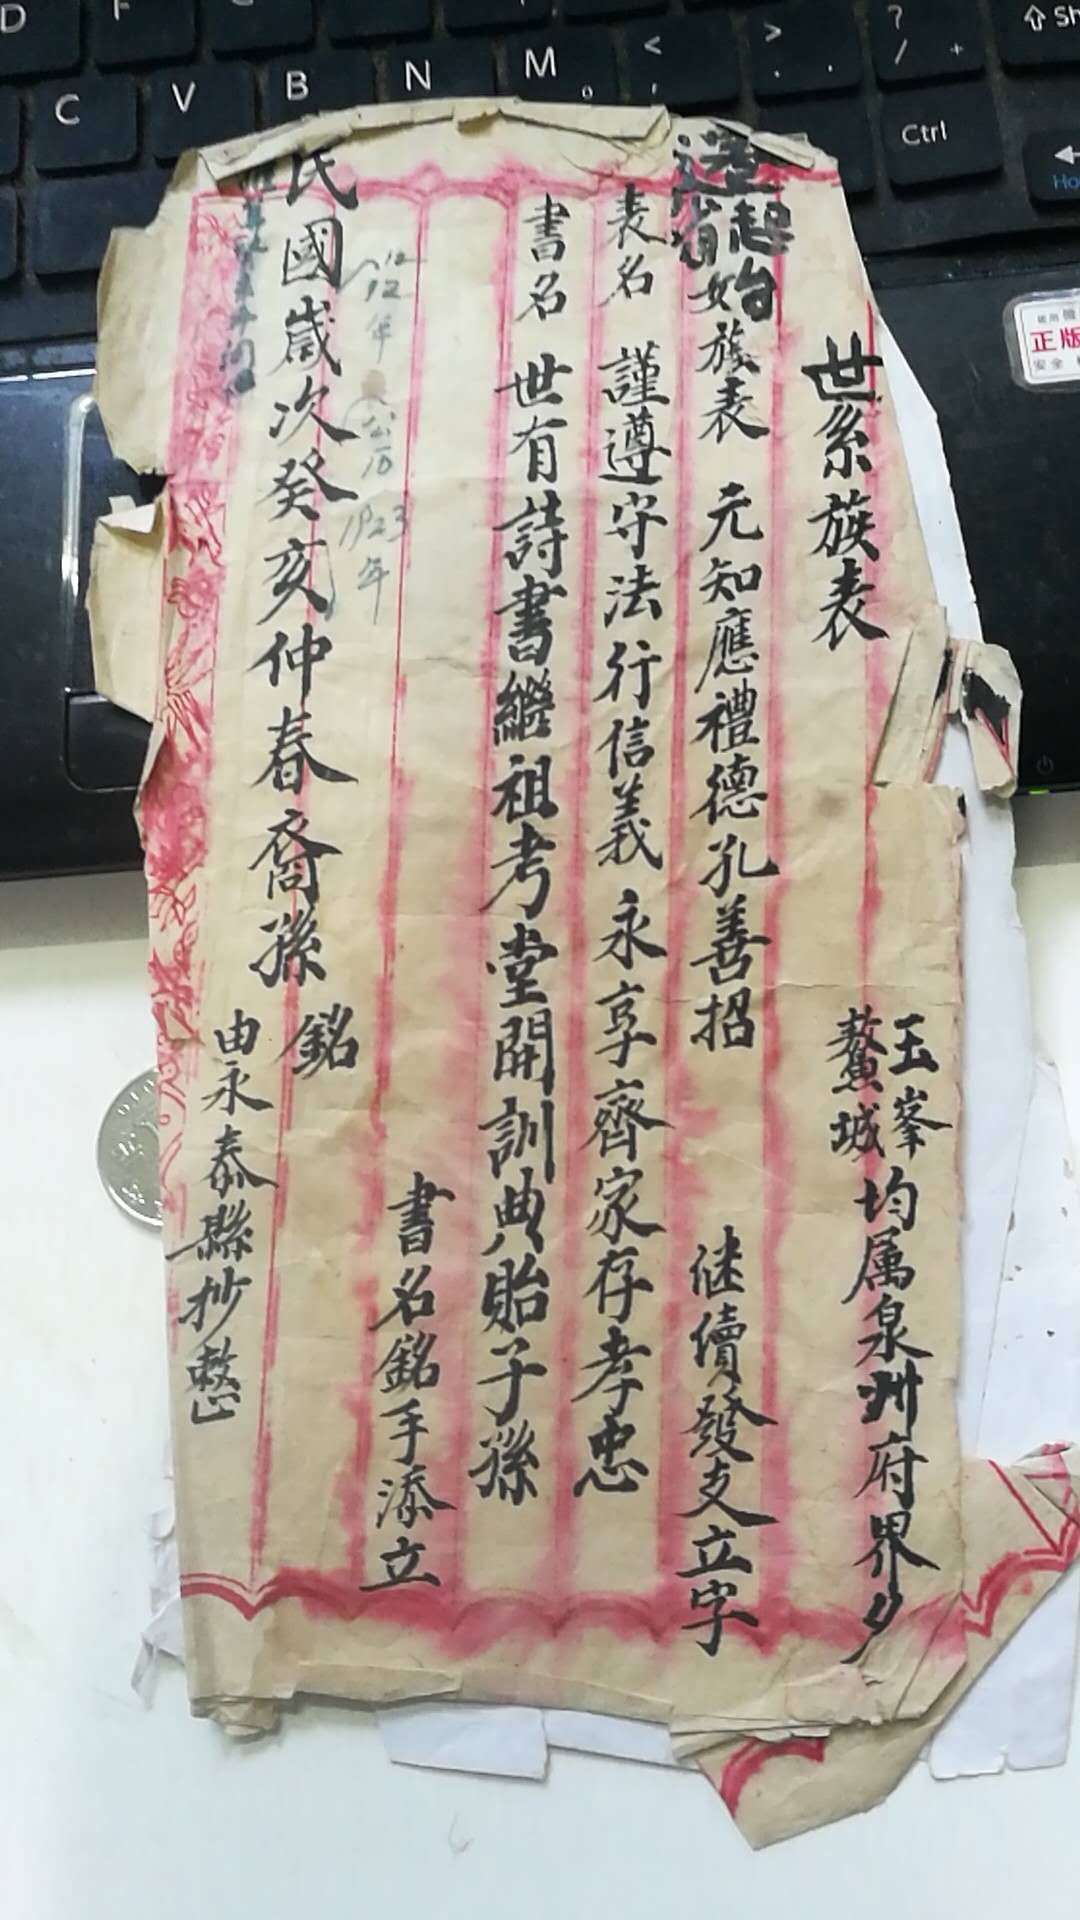 世系族表
玉峯
鰲城
均属泉州府界
起始族表 元知應禮德孔善招
継續發支立字
表名 謹遵守法行信義永享齊家存孝忠
書名 世有詩書繼祖考堂開訓典貽子孫
書名銘手添立
12年
公历
1923年
民國歲次癸亥仲春裔孫
銘
由永泰縣抄整
D
F
C
V
B
N
M
<
,
>
.
?
/
+
Sh
Ctrl
Ho
正版
安全